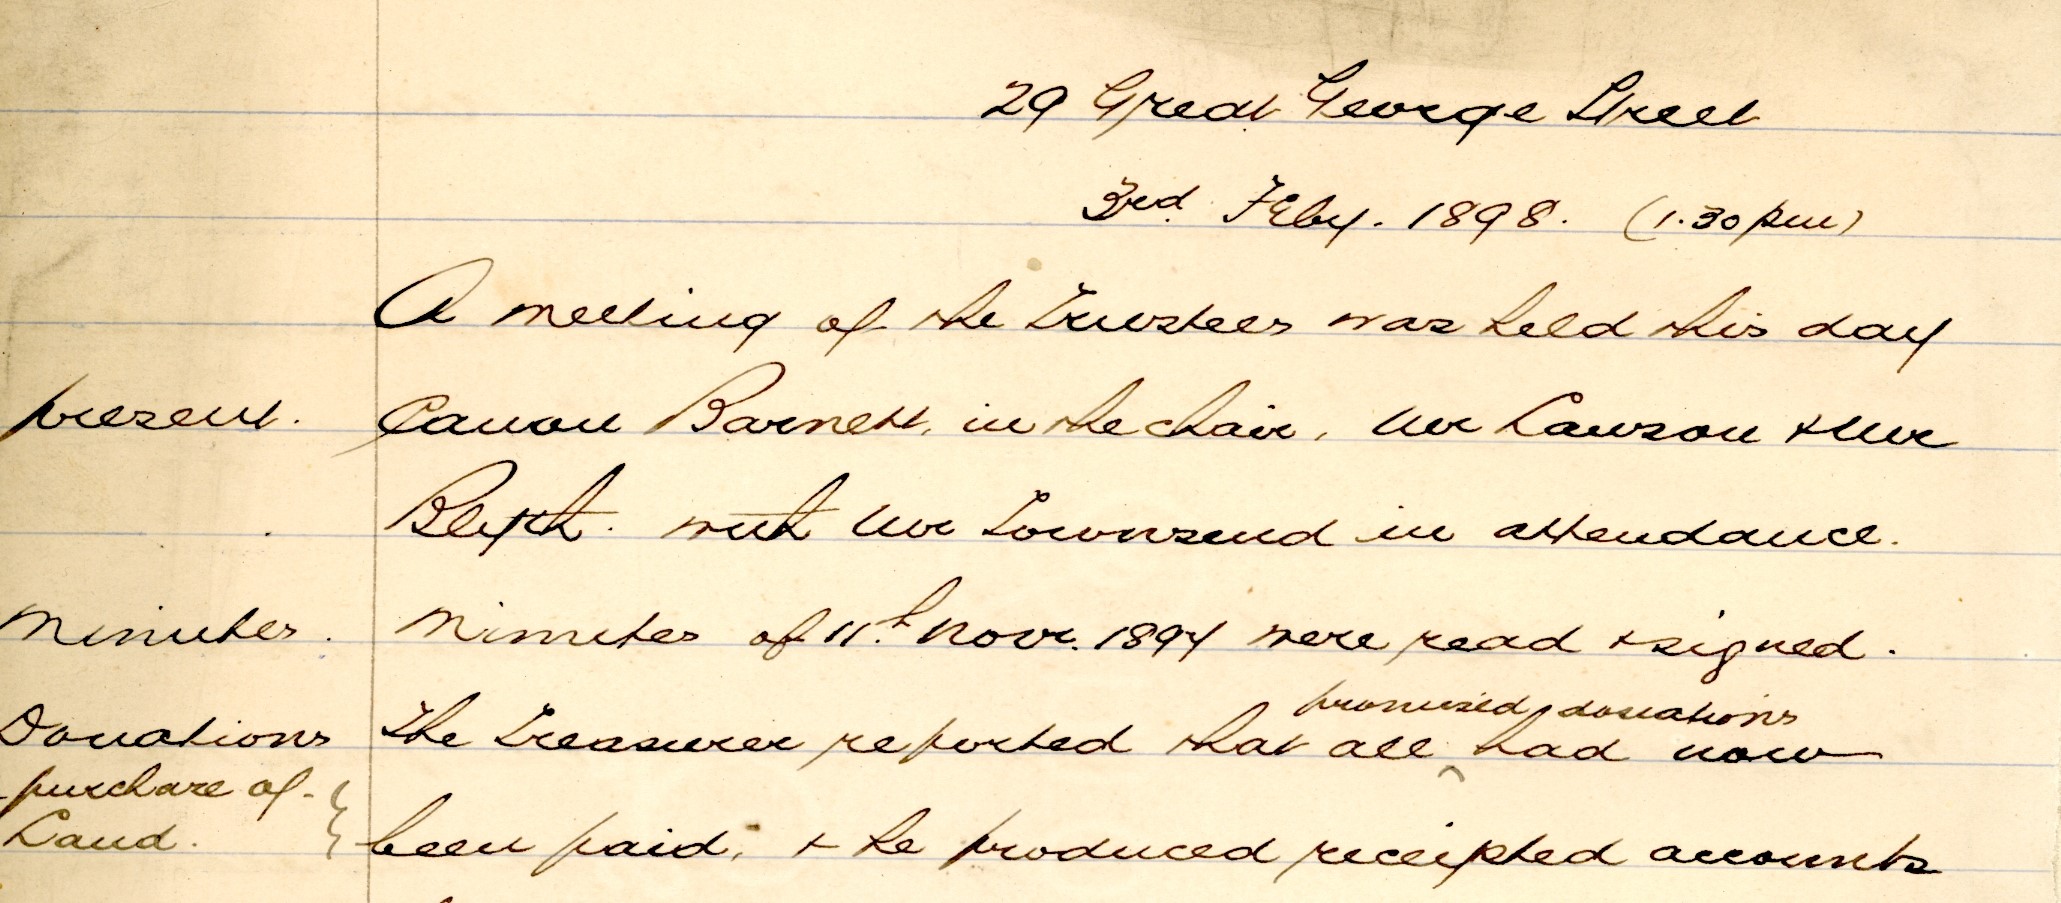 29 Great George Street
3rd Feby. 1898. (1.30 pm)
A meeting of the Trustees was held this day
present. Canon Barnett, in the chair, Mr Lawson & Mr
Blyth. with Mr Townsend in attendance.
Minutes. Minutes of 11th Novr. 1897 were read & signed.
promised donations
Donations The Treasurer reported that all ^ had now
purchase of
Land. been paid, & he produced receipted accounts